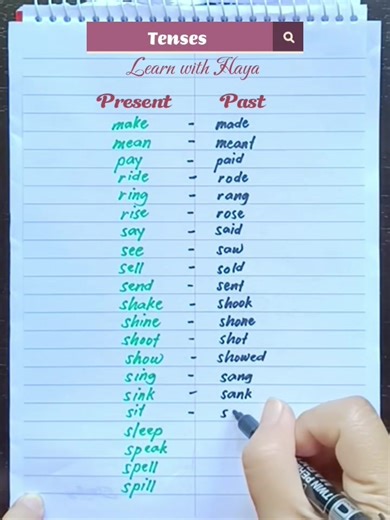 Tenses
Learn with Haya
Present Past
make - made
mean - meant
pay - paid
ride - rode
ring - rang
rise - rose
say - said
see - saw
sell - sold
send - sent
shake - shook
shine - shone
shoot - shot
show - showed
sing - sang
sink - sank
sit - s
sleep
speak
spell
spill
TWIN PE